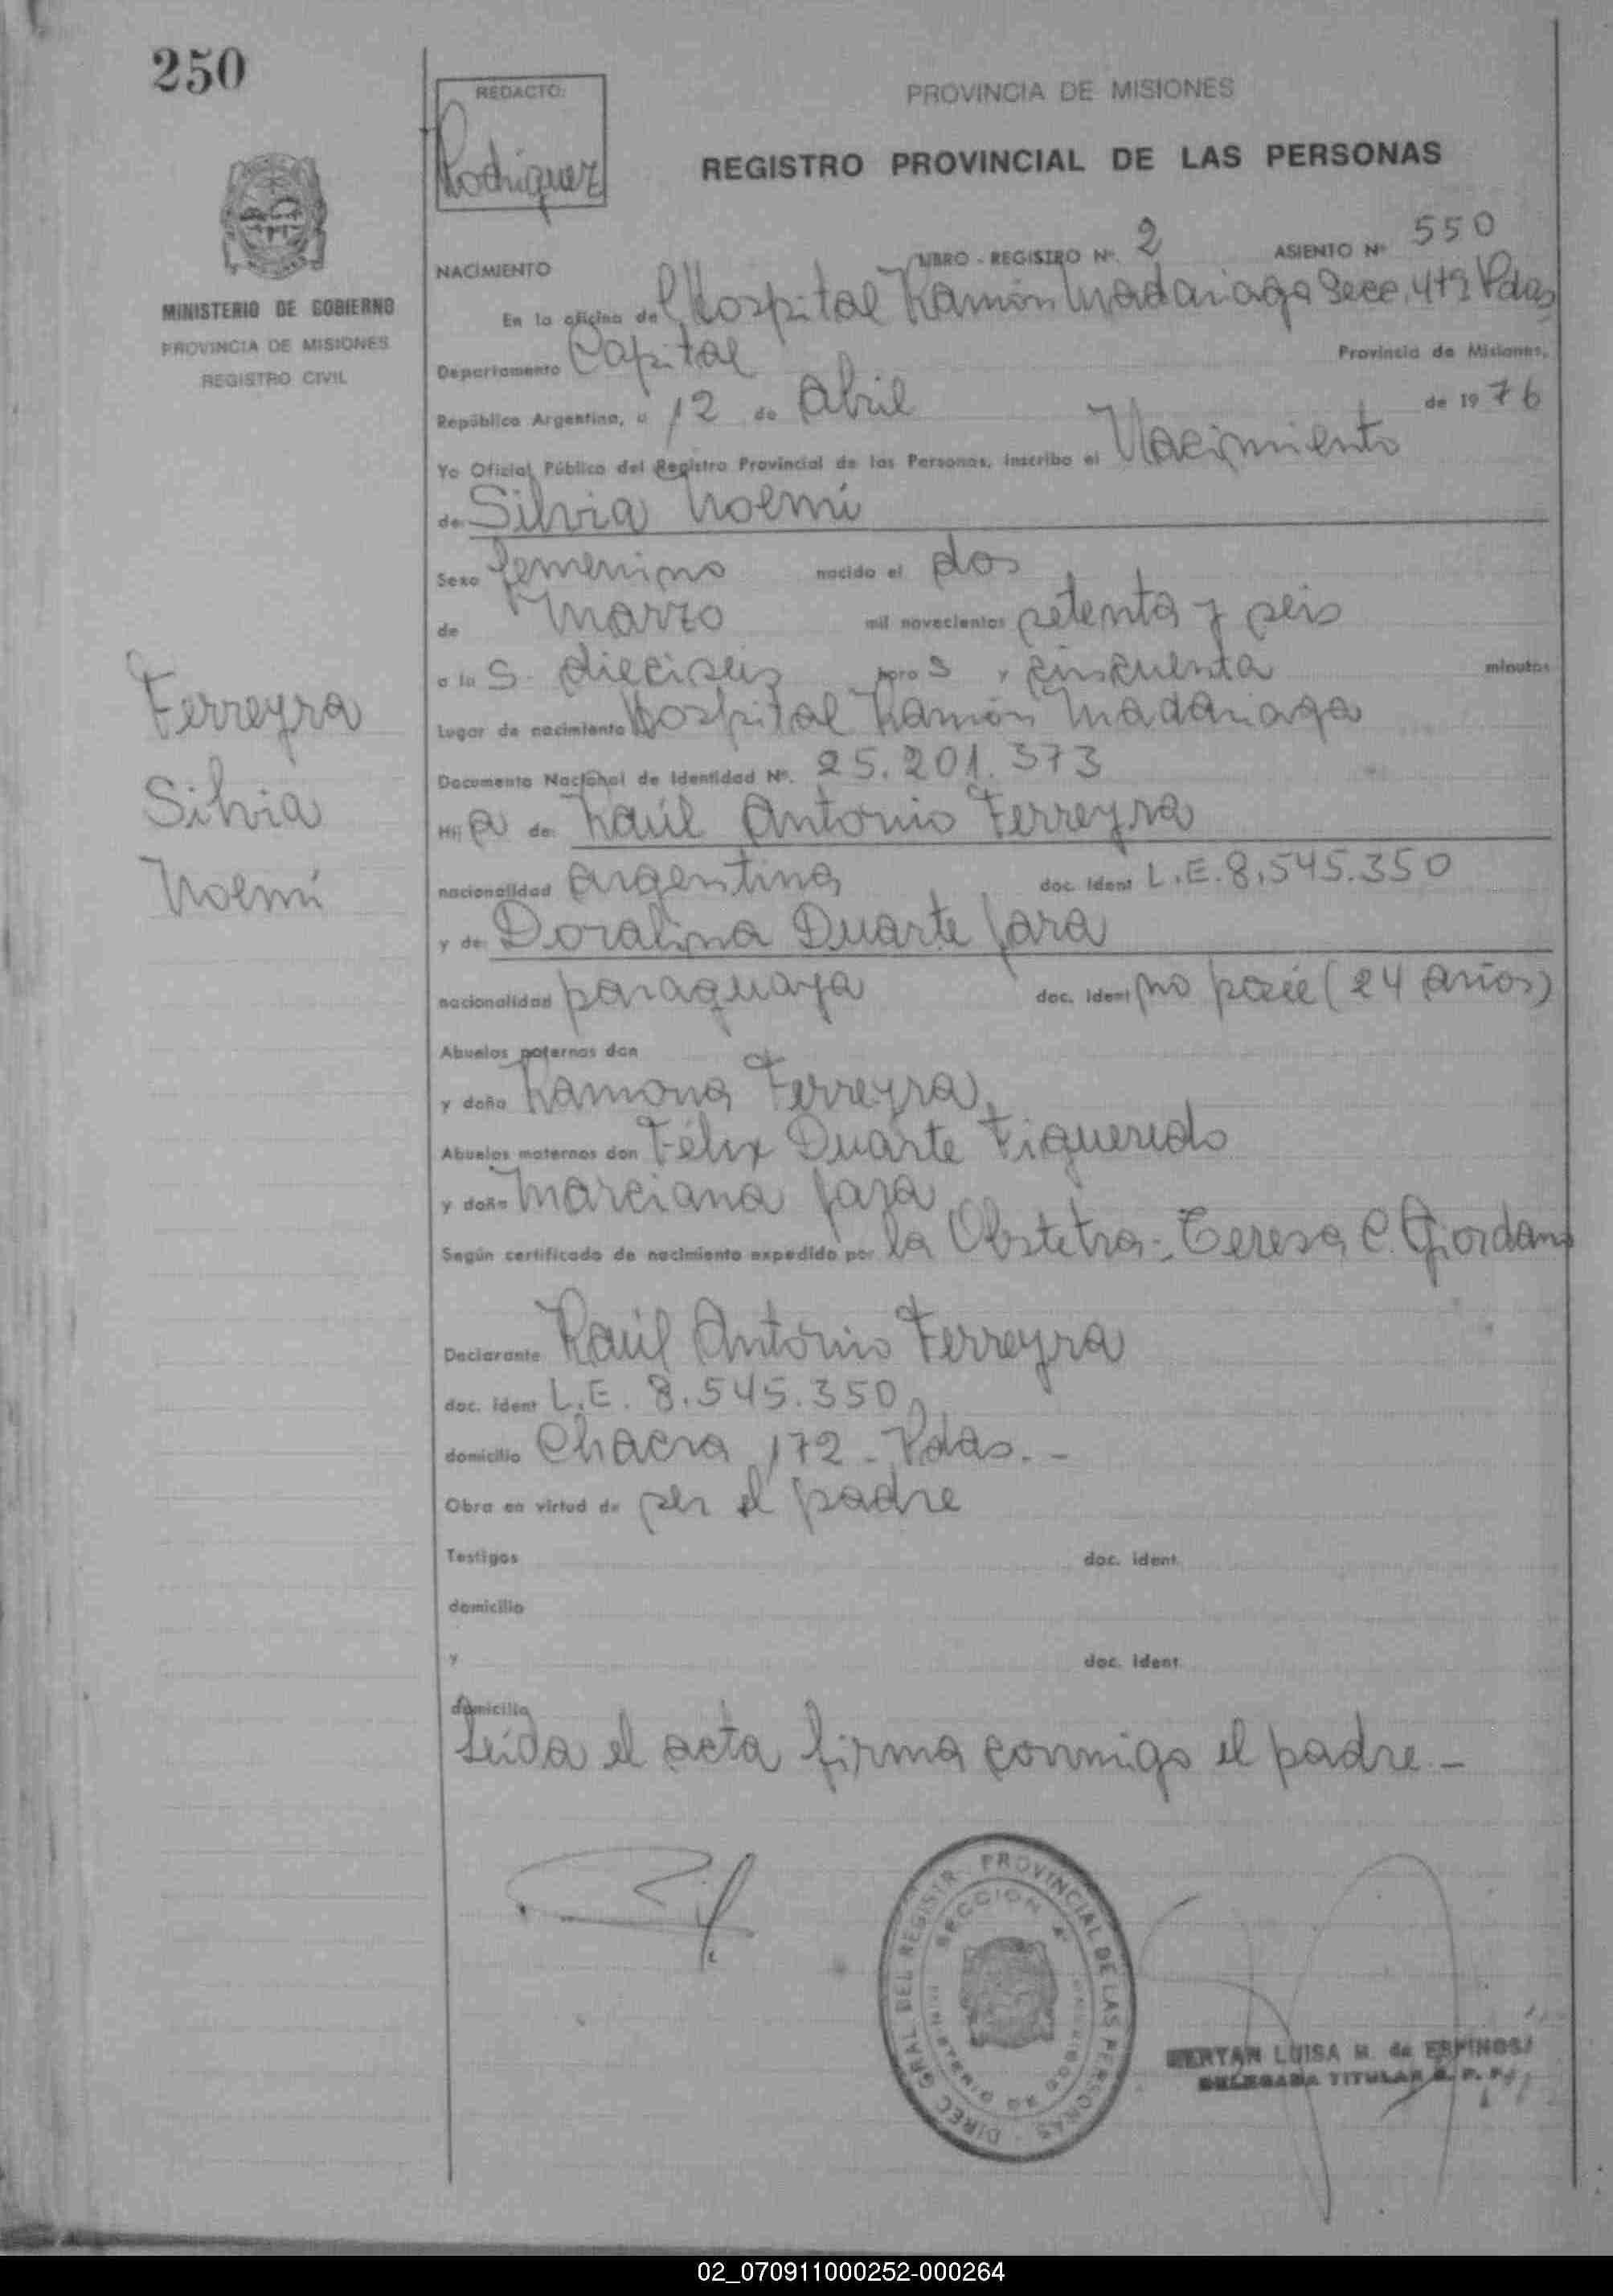 250
REDACTO:
Rodriguez
PROVINCIA DE MISIONES
REGISTRO PROVINCIAL DE LAS PERSONAS
MINISTERIO DE GOBIERNO
PROVINCIA DE MISIONES
REGISTRO CIVIL
NACIMIENTO LIBRO - REGISTRO Nº. 2 ASIENTO Nº 550
En la oficina del Hospital Ramón Madariaga Secc. 4ta Pdas
Departamento Capital Provincia de Misiones,
República Argentina, a 12 de Abril de 1976
Yo Oficial Público del Registro Provincial de las Personas, inscribo el Nacimiento
de Silvia Noemí
Sexo femenino nacido el dos
de Marzo mil novecientos setenta y seis
a la s dieciseis hora s y cincuenta minutos
Lugar de nacimiento Hospital Ramón Madariaga
Documento Nacional de Identidad Nº. 25.201.373
Hij a de Raúl Antonio Ferreyra
nacionalidad argentina doc. ident L.E. 8.545.350
y de Doralina Duarte Jara
nacionalidad paraguaya doc. ident no posée (24 años)
Abuelos paternos don
y doña Ramona Ferreyra
Abuelos maternos don Félix Duarte Figueredo
y doña Marciana Jara
Según certificado de nacimiento expedido por la Obstetra - Teresa C. Giordano
Declarante Raúl Antonio Ferreyra
doc. ident L.E. 8.545.350
domicilio Chacra 172 - Pdas. -
Obra en virtud de ser el padre
Testigos doc. ident.
domicilio
y doc. ident.
domicilio
Leída el acta firma conmigo el padre. -
Ferreyra
Silvia
Noemí
DIREC. GRAL. DEL REGISTR. PROVINCIAL DE LAS PERSONAS
SECCION 4ª
MINISTERIO DE GOBIERNO
LUISA M. de ESPINOSA
DELEGADA TITULAR R. P. P.
02_070911000252-000264